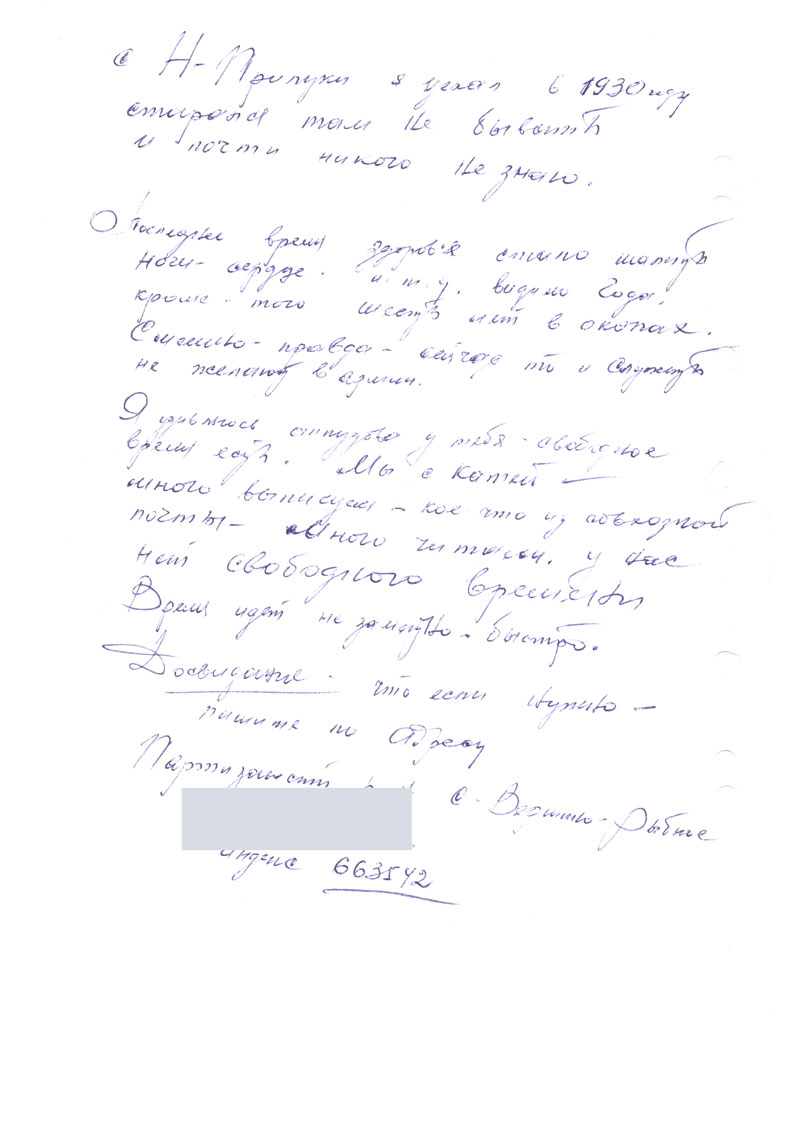 с Н-Припуки я уехал в 1930 году
старался там не бывать
и почти никого не знаю.
Последнее время здоров'я стало шалить
ноги - сердце. и.т.д. видимо года.
кроме - того шесть лет в окопах.
Смешно - правда - сейчас то и служить
не желают в армии.
Я удивляюсь откудова у тебя - свободное
время есть. Мы с Катей —
много выписуем - кое что из
почты - Много читаем. у нас
нет свободного времени
Время идет не заметно - быстро.
Досвидание - что если нужно —
пишите по Адресу
Партизанский с - Вершино - Рыбное
индекс 663542